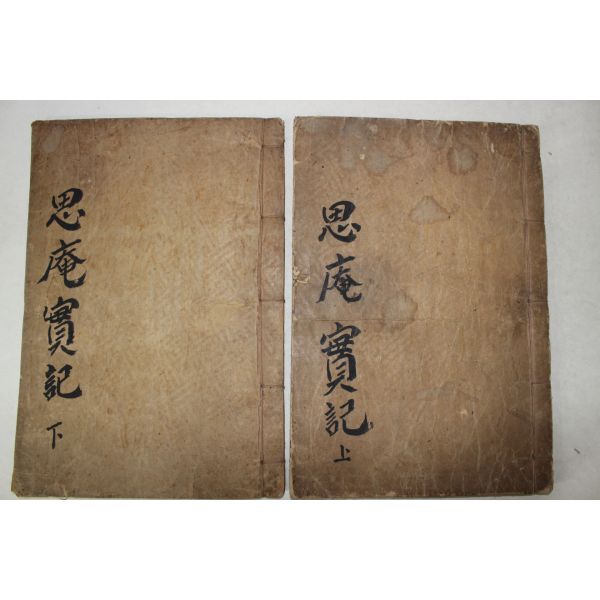 思庵實記上
思庵實記下